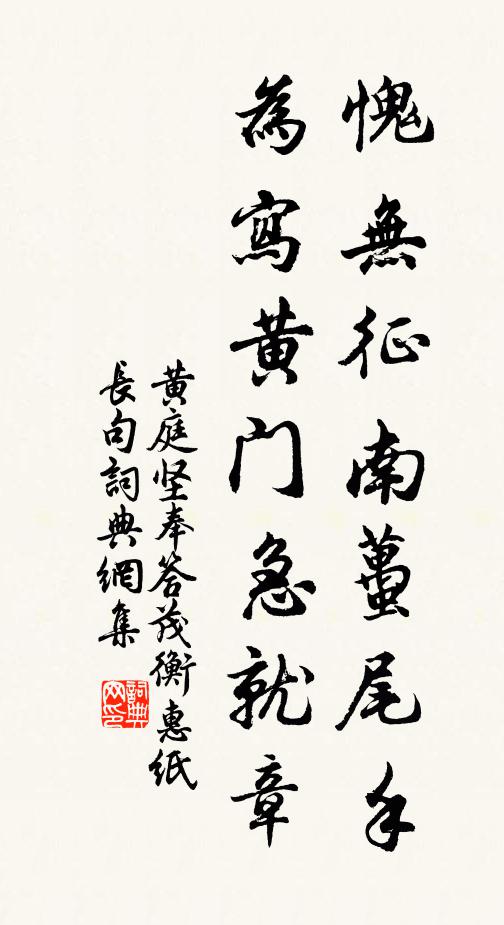 愧無征南蠆尾手
為寫黄門急就章
黄庭坚奉答茂衡惠紙
長句詞典網集
詞典网印